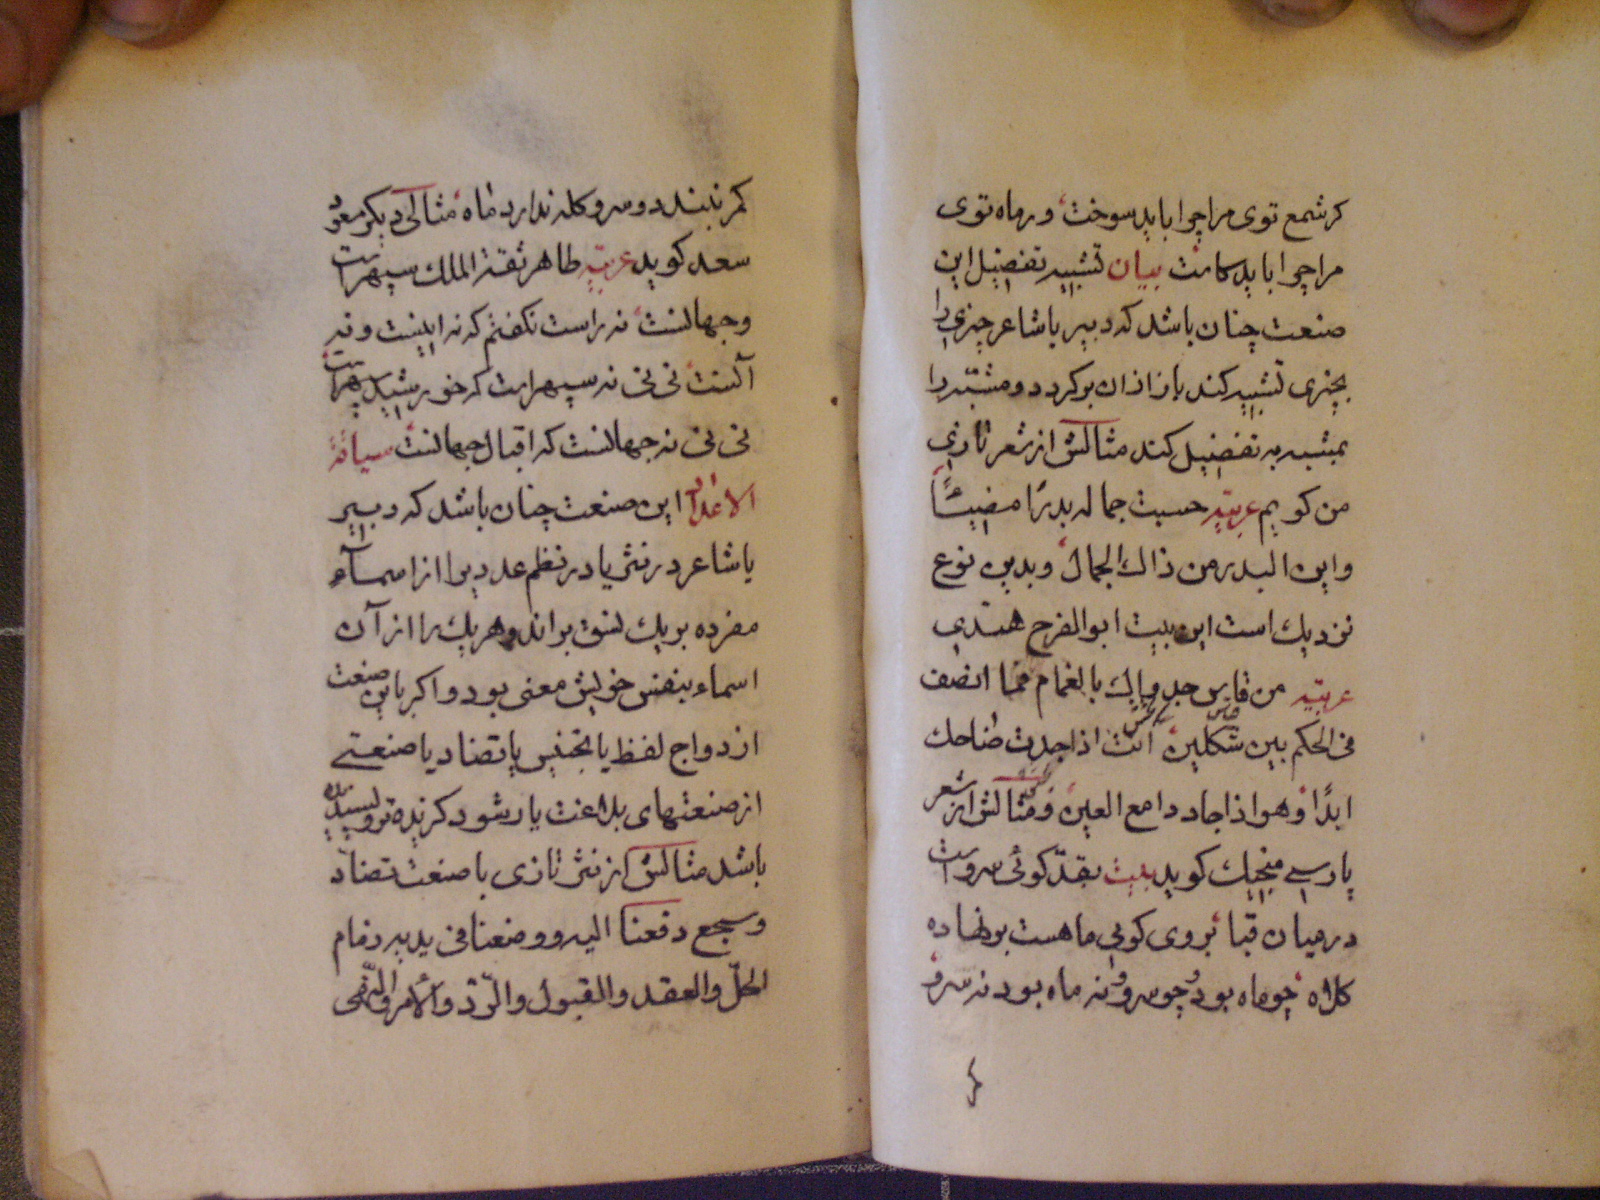 کر شمع توی مرا چرا باید سوخت ور ماه توی
مرا چرا باید کاست بیان تشبیه تفضیل این
صنعت چنان باشد که دبیر یا شاعر چیزی را
بچیزی تشبیه کند باز ازان بر کردد و مشبّه را
بمشبه به تفضیل کند مثالش از شعر تازی
من کویم عربیّه حسبت جماله بدرًا مضیئًا
واین البدر من ذاك الجمال وبدین نوع
نزدیك است این بیت ابو الفرج هندی
عربیّه من قاس جدواك بالغمام فما انصف
فی الحکم بین شکلین انت اذا جدت ضاحك
ابدًا وهو اذا جاد دامع العین ومثالش از شعر
پارسی منجیك کوید بیت بقدّ کوئی سروست
در میان قبا بروی کویی ماهست بر نهاده
کلاه چو ماه بود و چو سرو و نه ماه بود نه سرو
کمر نبندد و سرو کله ندارد ماه مثالی دیکر مسعود
سعد کوید عربیّه طاهر ثقة الملك سپهرست
وجهانست نه راست نکفتم که نه اینست و نه
آنست نی نی نه سپهرست که خورشید سپهرست
نی نی نه جهانست که اقبال جهانست سیاقة
الاعداد این صنعت چنان باشد که دبیر
یا شاعر در نثر یا در نظم عددیرا از اسمآء
مفرده بر یك نسق براند وهریك را از آن
اسماء بنفس خویش معنی بود و اکر باین صنعت
ازدواج لفظ یا تجنیس یا تضاد یا صنعتی
از صنعتهای بلاغت یار شود کزیده تر و پسندیده
باشد مثالش از نثر تازی با صنعت تضادّ
وسجع دفعنا الیه ووضعنا فی یدیه زمام
الحلّ والعقد والقبول والردّ والأمر والنّهی